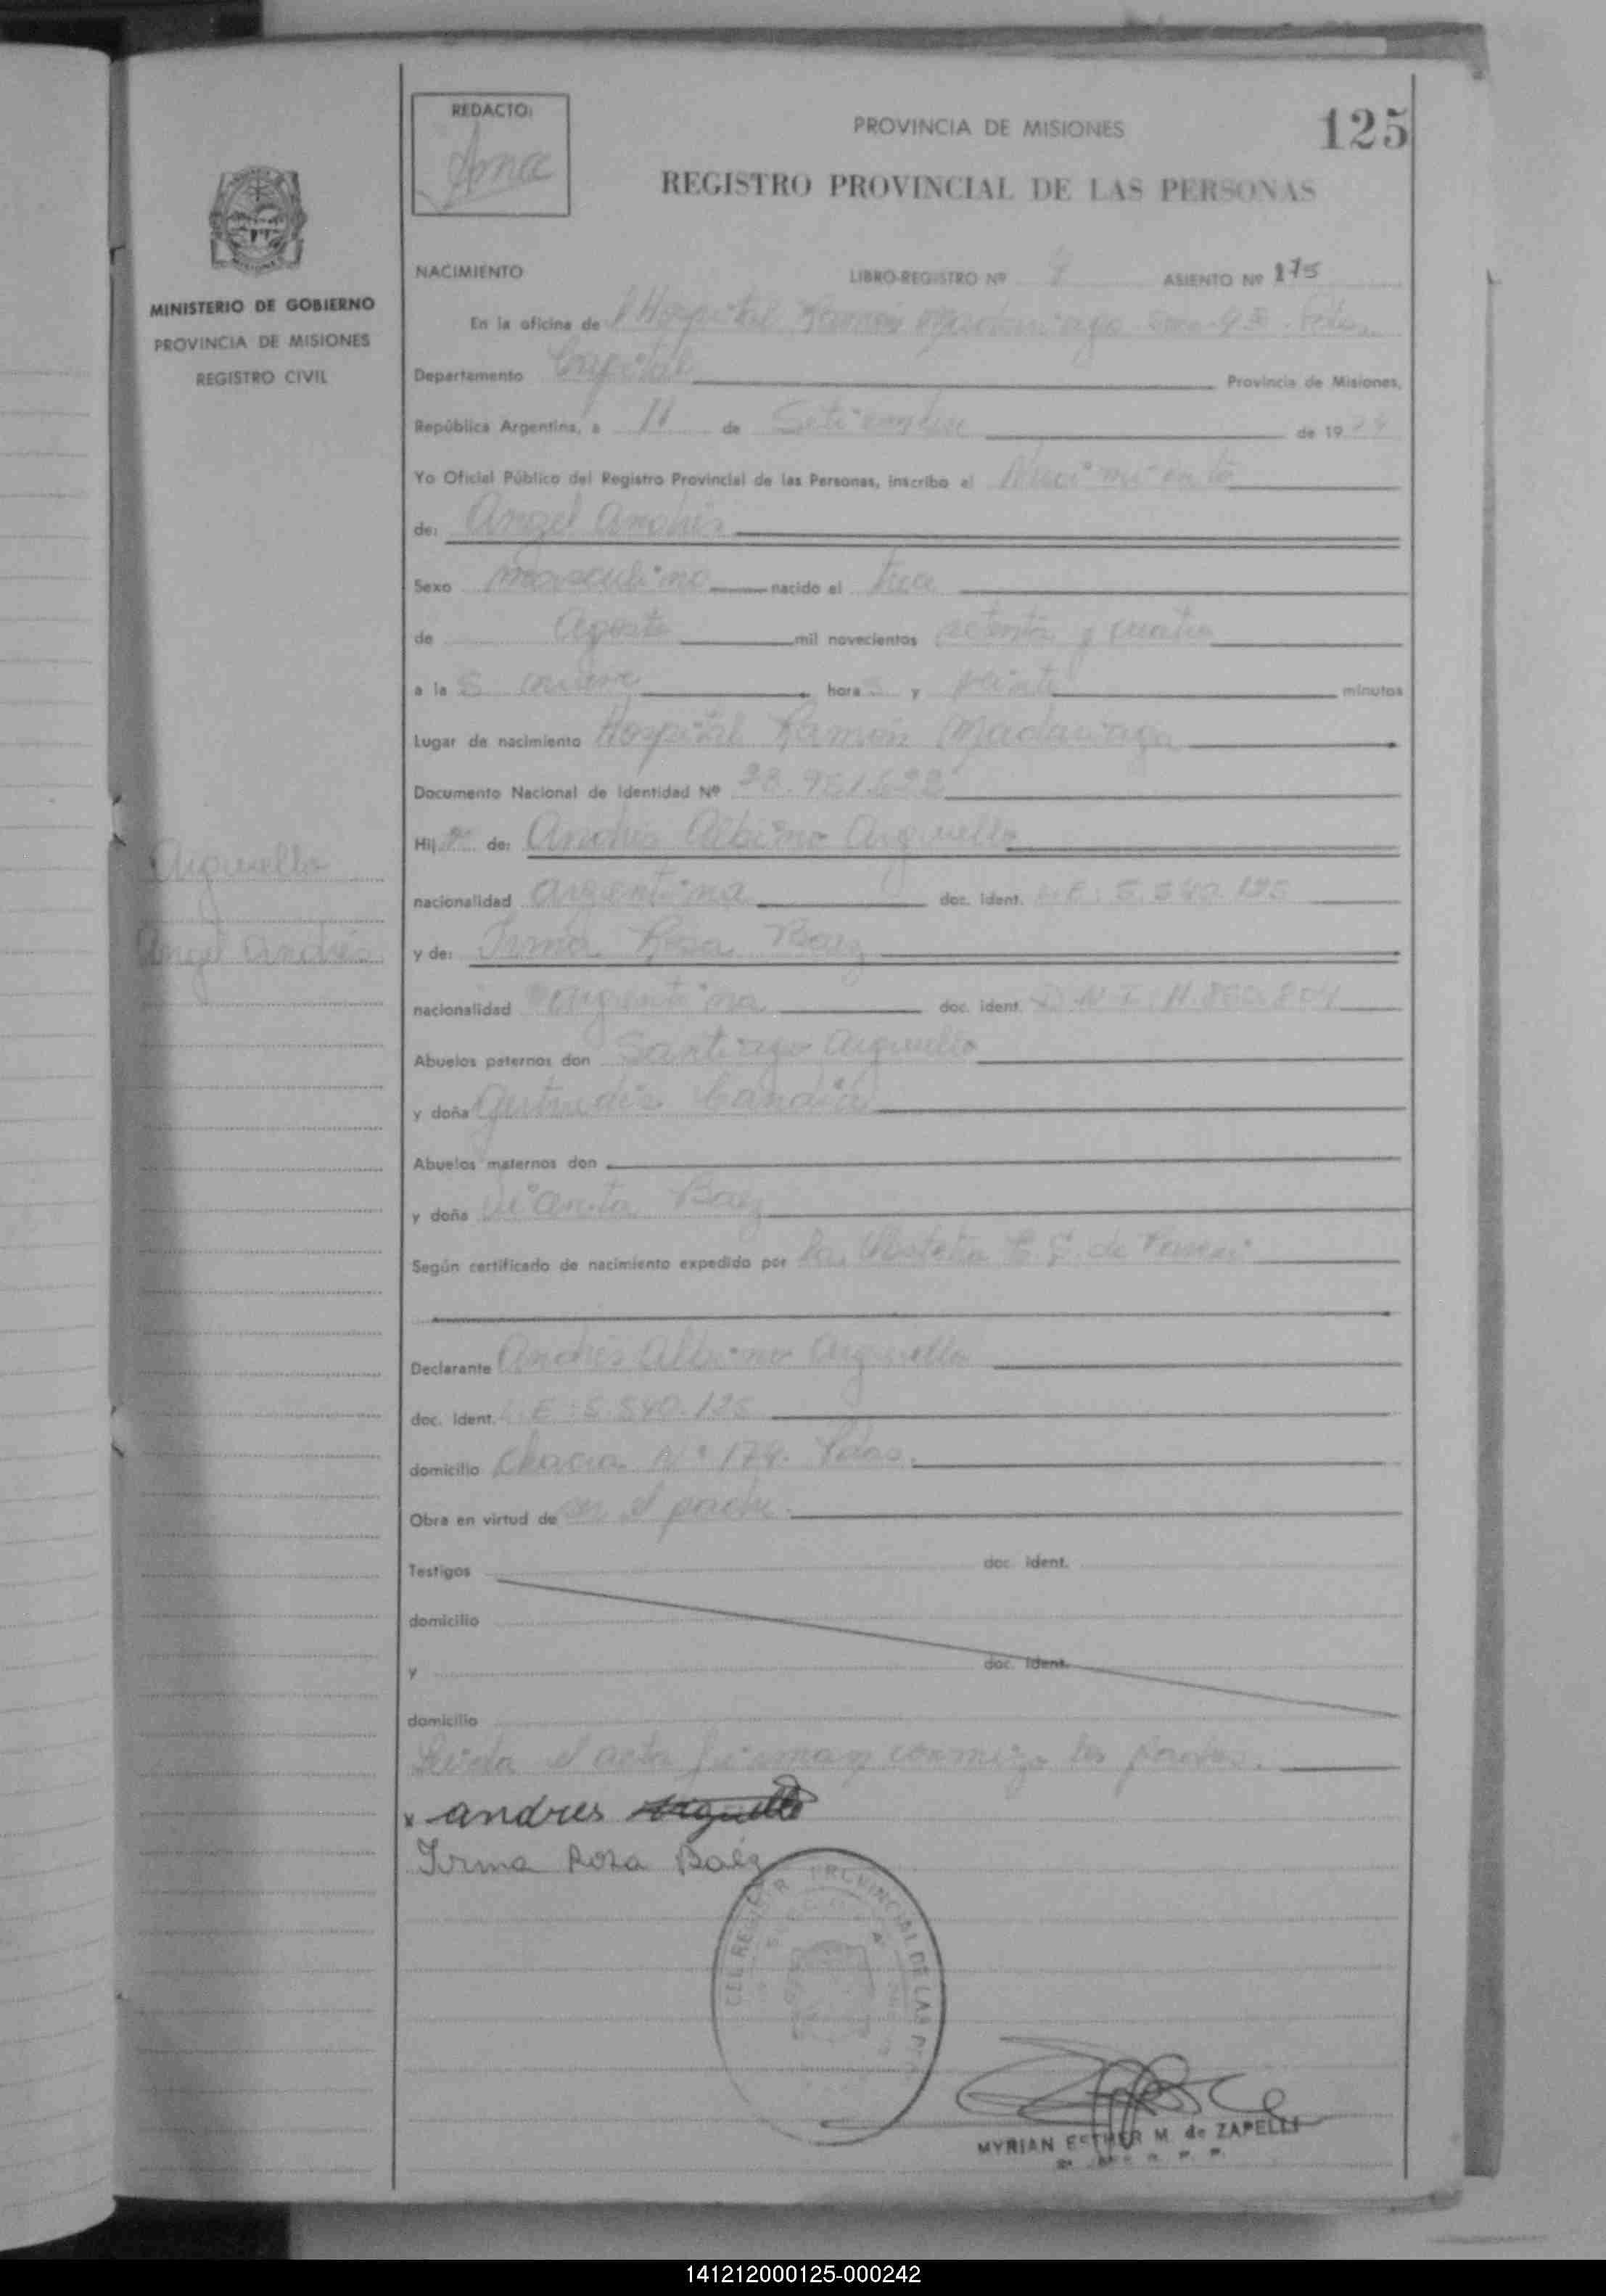 REDACTO:
PROVINCIA DE MISIONES
125
REGISTRO PROVINCIAL DE LAS PERSONAS
MINISTERIO DE GOBIERNO
PROVINCIA DE MISIONES
REGISTRO CIVIL
NACIMIENTO LIBRO-REGISTRO Nº ASIENTO Nº 175
En la oficina de l Hospital Ramon Madariaga
Departamento Capital Provincia de Misiones,
República Argentina, a 11 de Setiembre de 1974
Yo Oficial Público del Registro Provincial de las Personas, inscribo el Nacimiento
de: Angel Andrés
Sexo masculino nacido el tres
de Agosto mil novecientos setenta y cuatro
a la s nueve hora s y veinte minutos
Lugar de nacimiento Hospital Ramón Madariaga
Documento Nacional de Identidad Nº
Hij o de: Andrés Albino Arguello
nacionalidad argentina doc. ident. L.E: 5.540.125
Arguello
Angel Andrés
y de: Irma Rosa Baez
nacionalidad argentina doc. ident. D.N.I.
Abuelos paternos don Santiago Arguello
y doña Gertrudis Candia
Abuelos maternos don
y doña Baez
Según certificado de nacimiento expedido por la Obstetra
Declarante Andrés Albino Arguello
doc. ident. L.E: 5.540.125
domicilio Chacra Nº 174. Pdas.
Obra en virtud de ser el padre.
Testigos doc. ident.
domicilio
y doc. ident.
domicilio
Leida el acta firman conmigo los padres.
x andres Arguello
Irma Rosa Baéz
MYRIAN ESTHER M. de ZAPELLI
141212000125-000242